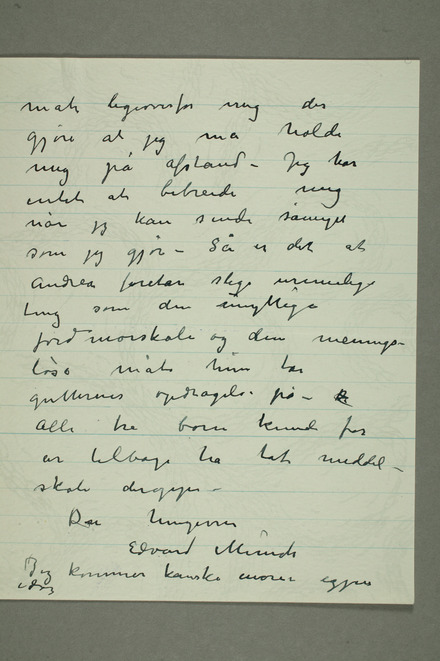 måte ligeoverfor mig der
gjøre at jeg må holde
mig på afstand – Jeg har
intet at bebreide mig
når jg kan sende såmeget
som jeg gjør – Så er det at
Andrea foretar slige urimelige
ting som den unyttige
jordmorskole og den menings–
løse måte hun tar
gutternes opdragelse på –
Alle tre born kunde for
år tilbage ha tat middel–
skole
Din hengivne
Edvard Munch
Jeg kommer kanske